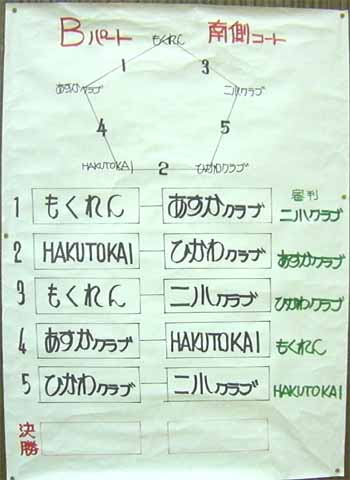 Bパート 南側コート
もくれん
1 3
あすかクラブ 二小クラブ
4 5
HAKUTOKAI 2 ひかわクラブ
審判
1 もくれん あすかクラブ 二小クラブ
2 HAKUTOKAI ひかわクラブ あすかクラブ
3 もくれん 二小クラブ ひかわクラブ
4 あすかクラブ HAKUTOKAI もくれん
5 ひかわクラブ 二小クラブ HAKUTOKAI
決勝